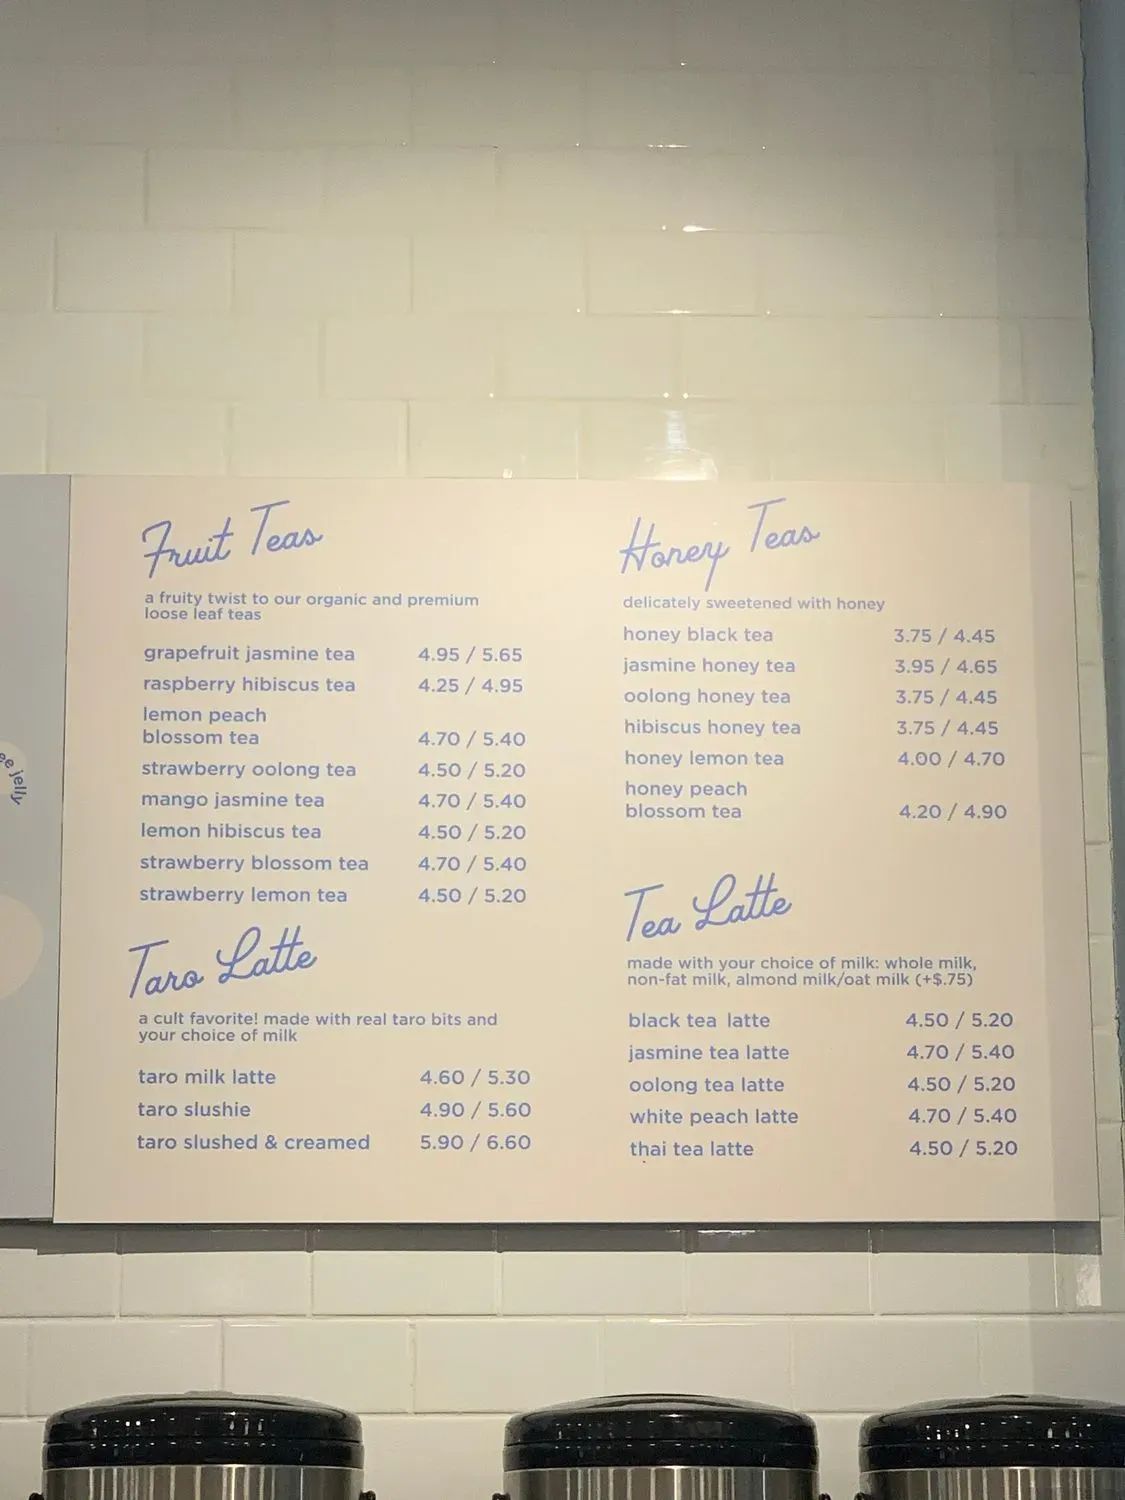 ee jelly
Fruit Teas
a fruity twist to our organic and premium
loose leaf teas
grapefruit jasmine tea 4.95 / 5.65
raspberry hibiscus tea 4.25 / 4.95
lemon peach
blossom tea 4.70 / 5.40
strawberry oolong tea 4.50 / 5.20
mango jasmine tea 4.70 / 5.40
lemon hibiscus tea 4.50 / 5.20
strawberry blossom tea 4.70 / 5.40
strawberry lemon tea 4.50 / 5.20
Taro Latte
a cult favorite! made with real taro bits and
your choice of milk
taro milk latte 4.60 / 5.30
taro slushie 4.90 / 5.60
taro slushed & creamed 5.90 / 6.60
Honey Teas
delicately sweetened with honey
honey black tea 3.75 / 4.45
jasmine honey tea 3.95 / 4.65
oolong honey tea 3.75 / 4.45
hibiscus honey tea 3.75 / 4.45
honey lemon tea 4.00 / 4.70
honey peach
blossom tea 4.20 / 4.90
Tea Latte
made with your choice of milk: whole milk,
non-fat milk, almond milk/oat milk (+$.75)
black tea latte 4.50 / 5.20
jasmine tea latte 4.70 / 5.40
oolong tea latte 4.50 / 5.20
white peach latte 4.70 / 5.40
thai tea latte 4.50 / 5.20